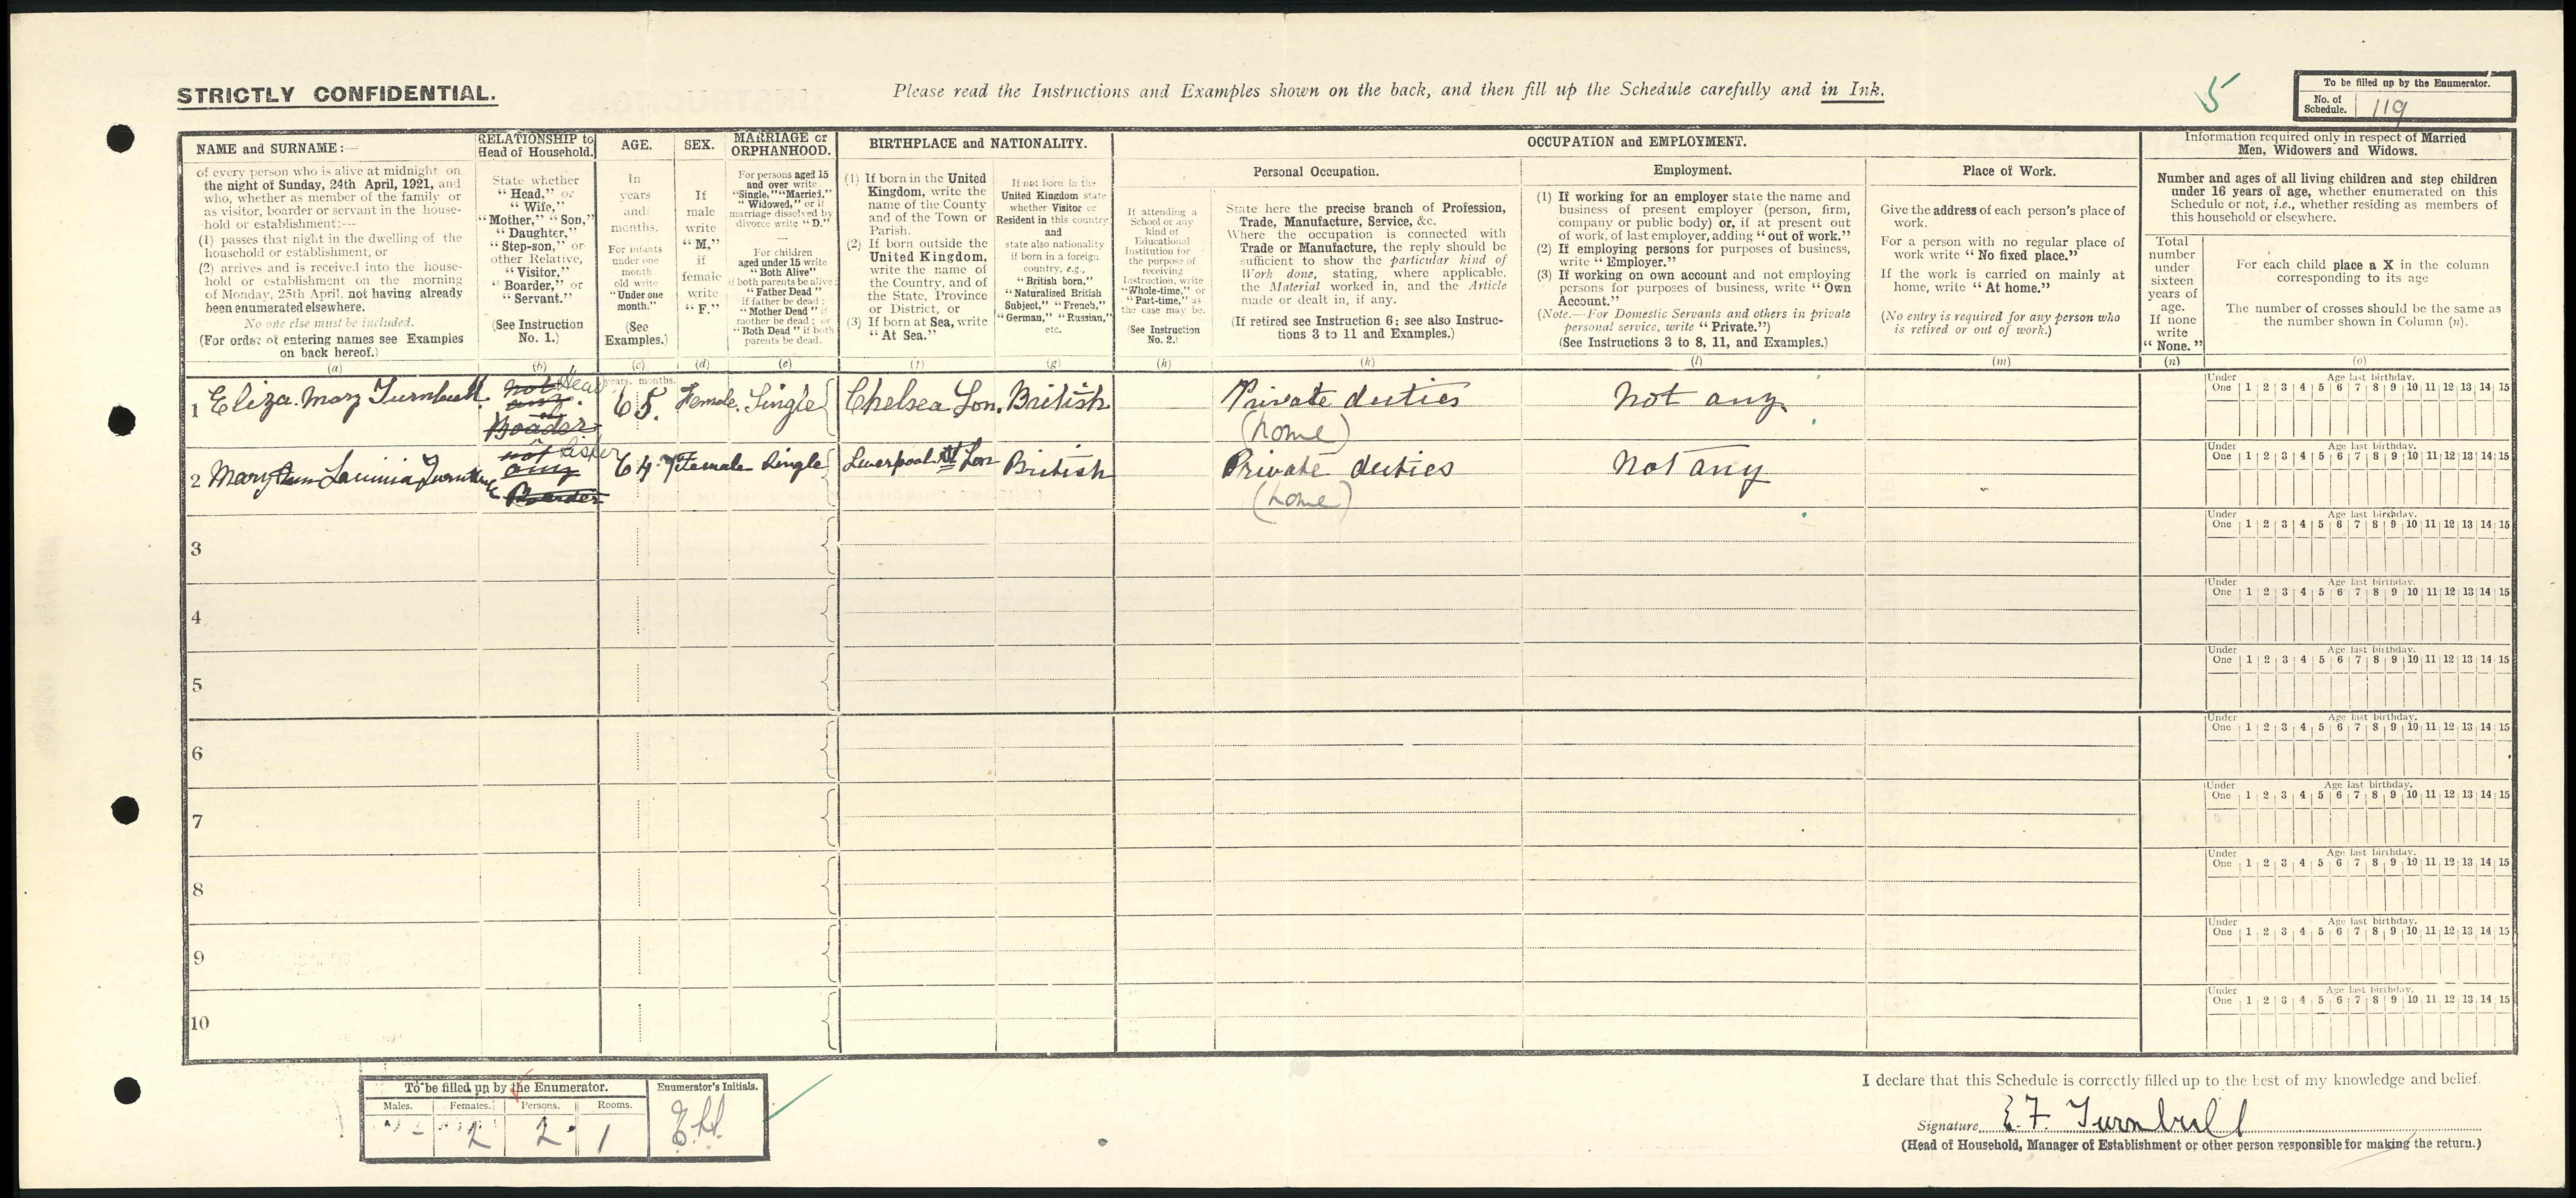 STRICTLY CONFIDENTIAL.
Please read the Instructions and Examples shown on the back, and then fill up the Schedule carefully and in Ink.
5
To be filled up by the Enumerator.
No. of Schedule. 119
NAME and SURNAME:—
of every person who is alive at midnight on
the night of Sunday, 24th April, 1921, and
who, whether as member of the family or
as visitor, boarder or servant in the house-
hold or establishment:—
(1) passes that night in the dwelling of the
household or establishment, or
(2) arrives and is received into the house-
hold or establishment on the morning
of Monday, 25th April, not having already
been enumerated elsewhere.
No one else must be included.
(For order of entering names see Examples
on back hereof.)
(a)
RELATIONSHIP to
Head of Household.
State whether
"Head," or
"Wife,"
"Mother," "Son,"
"Daughter,"
"Step-son," or
other Relative,
"Visitor,"
"Boarder," or
"Servant."
(See Instruction
No. 1.)
(b)
AGE.
In
years
and
months.
For infants
under one
month
old write
"Under one
month."
(See
Examples.)
(c)
SEX.
If
male
write
"M,"
if
female
write
"F."
(d)
MARRIAGE or
ORPHANHOOD.
For persons aged 15
and over write
"Single," "Married,"
"Widowed," or if
marriage dissolved by
divorce write "D."
—
For children
aged under 15 write
"Both Alive"
if both parents be alive;
"Father Dead"
if father be dead;
"Mother Dead" if
mother be dead; or
"Both Dead" if both
parents be dead.
(e)
BIRTHPLACE and NATIONALITY.
(1) If born in the United
Kingdom, write the
name of the County
and of the Town or
Parish.
(2) If born outside the
United Kingdom,
write the name of
the Country, and of
the State, Province
or District, or
(3) If born at Sea, write
"At Sea."
(f)
If not born in the
United Kingdom state
whether Visitor or
Resident in this country
and
state also nationality
if born in a foreign
country, e.g.,
"British born,"
"Naturalized British
Subject," "French,"
"German," "Russian,"
etc.
(g)
OCCUPATION and EMPLOYMENT.
If attending a
School or any
kind of
Educational
Institution for
the purpose of
receiving
Instruction, write
"Whole-time," or
"Part-time," as
the case may be.
(See Instruction
No. 2.)
(h)
Personal Occupation.
State here the precise branch of Profession,
Trade, Manufacture, Service, &c.
Where the occupation is connected with
Trade or Manufacture, the reply should be
sufficient to show the particular kind of
Work done, stating, where applicable,
the Material worked in, and the Article
made or dealt in, if any.
(If retired see Instruction 6; see also Instruc-
tions 3 to 11 and Examples.)
(k)
Employment.
(1) If working for an employer state the name and
business of present employer (person, firm,
company or public body) or, if at present out
of work, of last employer, adding "out of work."
(2) If employing persons for purposes of business,
write "Employer."
(3) If working on own account and not employing
persons for purposes of business, write "Own
Account."
(Note.—For Domestic Servants and others in private
personal service, write "Private.")
(See Instructions 3 to 8, 11, and Examples.)
(l)
Place of Work.
Give the address of each person's place of
work.
For a person with no regular place of
work write "No fixed place."
If the work is carried on mainly at
home, write "At home."
(No entry is required for any person who
is retired or out of work.)
(m)
Information required only in respect of Married
Men, Widowers and Widows.
Number and ages of all living children and step children
under 16 years of age, whether enumerated on this
Schedule or not, i.e., whether residing as members of
this household or elsewhere.
Total
number
under
sixteen
years of
age.
If none
write
"None."
(n)
For each child place a X in the column
corresponding to its age
The number of crosses should be the same as
the number shown in Column (n).
(o)
years. months.
1 Eliza. Mary Turnbull. not any. or Boader Head 65. Female. Single Chelsea Lon. British Private duties (home) Not any.
Under One Age last birthday. 1 2 3 4 5 6 7 8 9 10 11 12 13 14 15
2 Mary Ann Lavinia Turnbull not any Boarder Sister 64 7 Female Single Liverpool St Lon British Private duties (home) Not any
Under One Age last birthday. 1 2 3 4 5 6 7 8 9 10 11 12 13 14 15
3
Under One Age last birthday. 1 2 3 4 5 6 7 8 9 10 11 12 13 14 15
4
Under One Age last birthday. 1 2 3 4 5 6 7 8 9 10 11 12 13 14 15
5
Under One Age last birthday. 1 2 3 4 5 6 7 8 9 10 11 12 13 14 15
6
Under One Age last birthday. 1 2 3 4 5 6 7 8 9 10 11 12 13 14 15
7
Under One Age last birthday. 1 2 3 4 5 6 7 8 9 10 11 12 13 14 15
8
Under One Age last birthday. 1 2 3 4 5 6 7 8 9 10 11 12 13 14 15
9
Under One Age last birthday. 1 2 3 4 5 6 7 8 9 10 11 12 13 14 15
10
Under One Age last birthday. 1 2 3 4 5 6 7 8 9 10 11 12 13 14 15
To be filled up by the Enumerator.
Males. Females. Persons. Rooms.
2 2 1
Enumerator's Initials.
I declare that this Schedule is correctly filled up to the best of my knowledge and belief.
Signature E. F. Turnbull
(Head of Household, Manager of Establishment or other person responsible for making the return.)